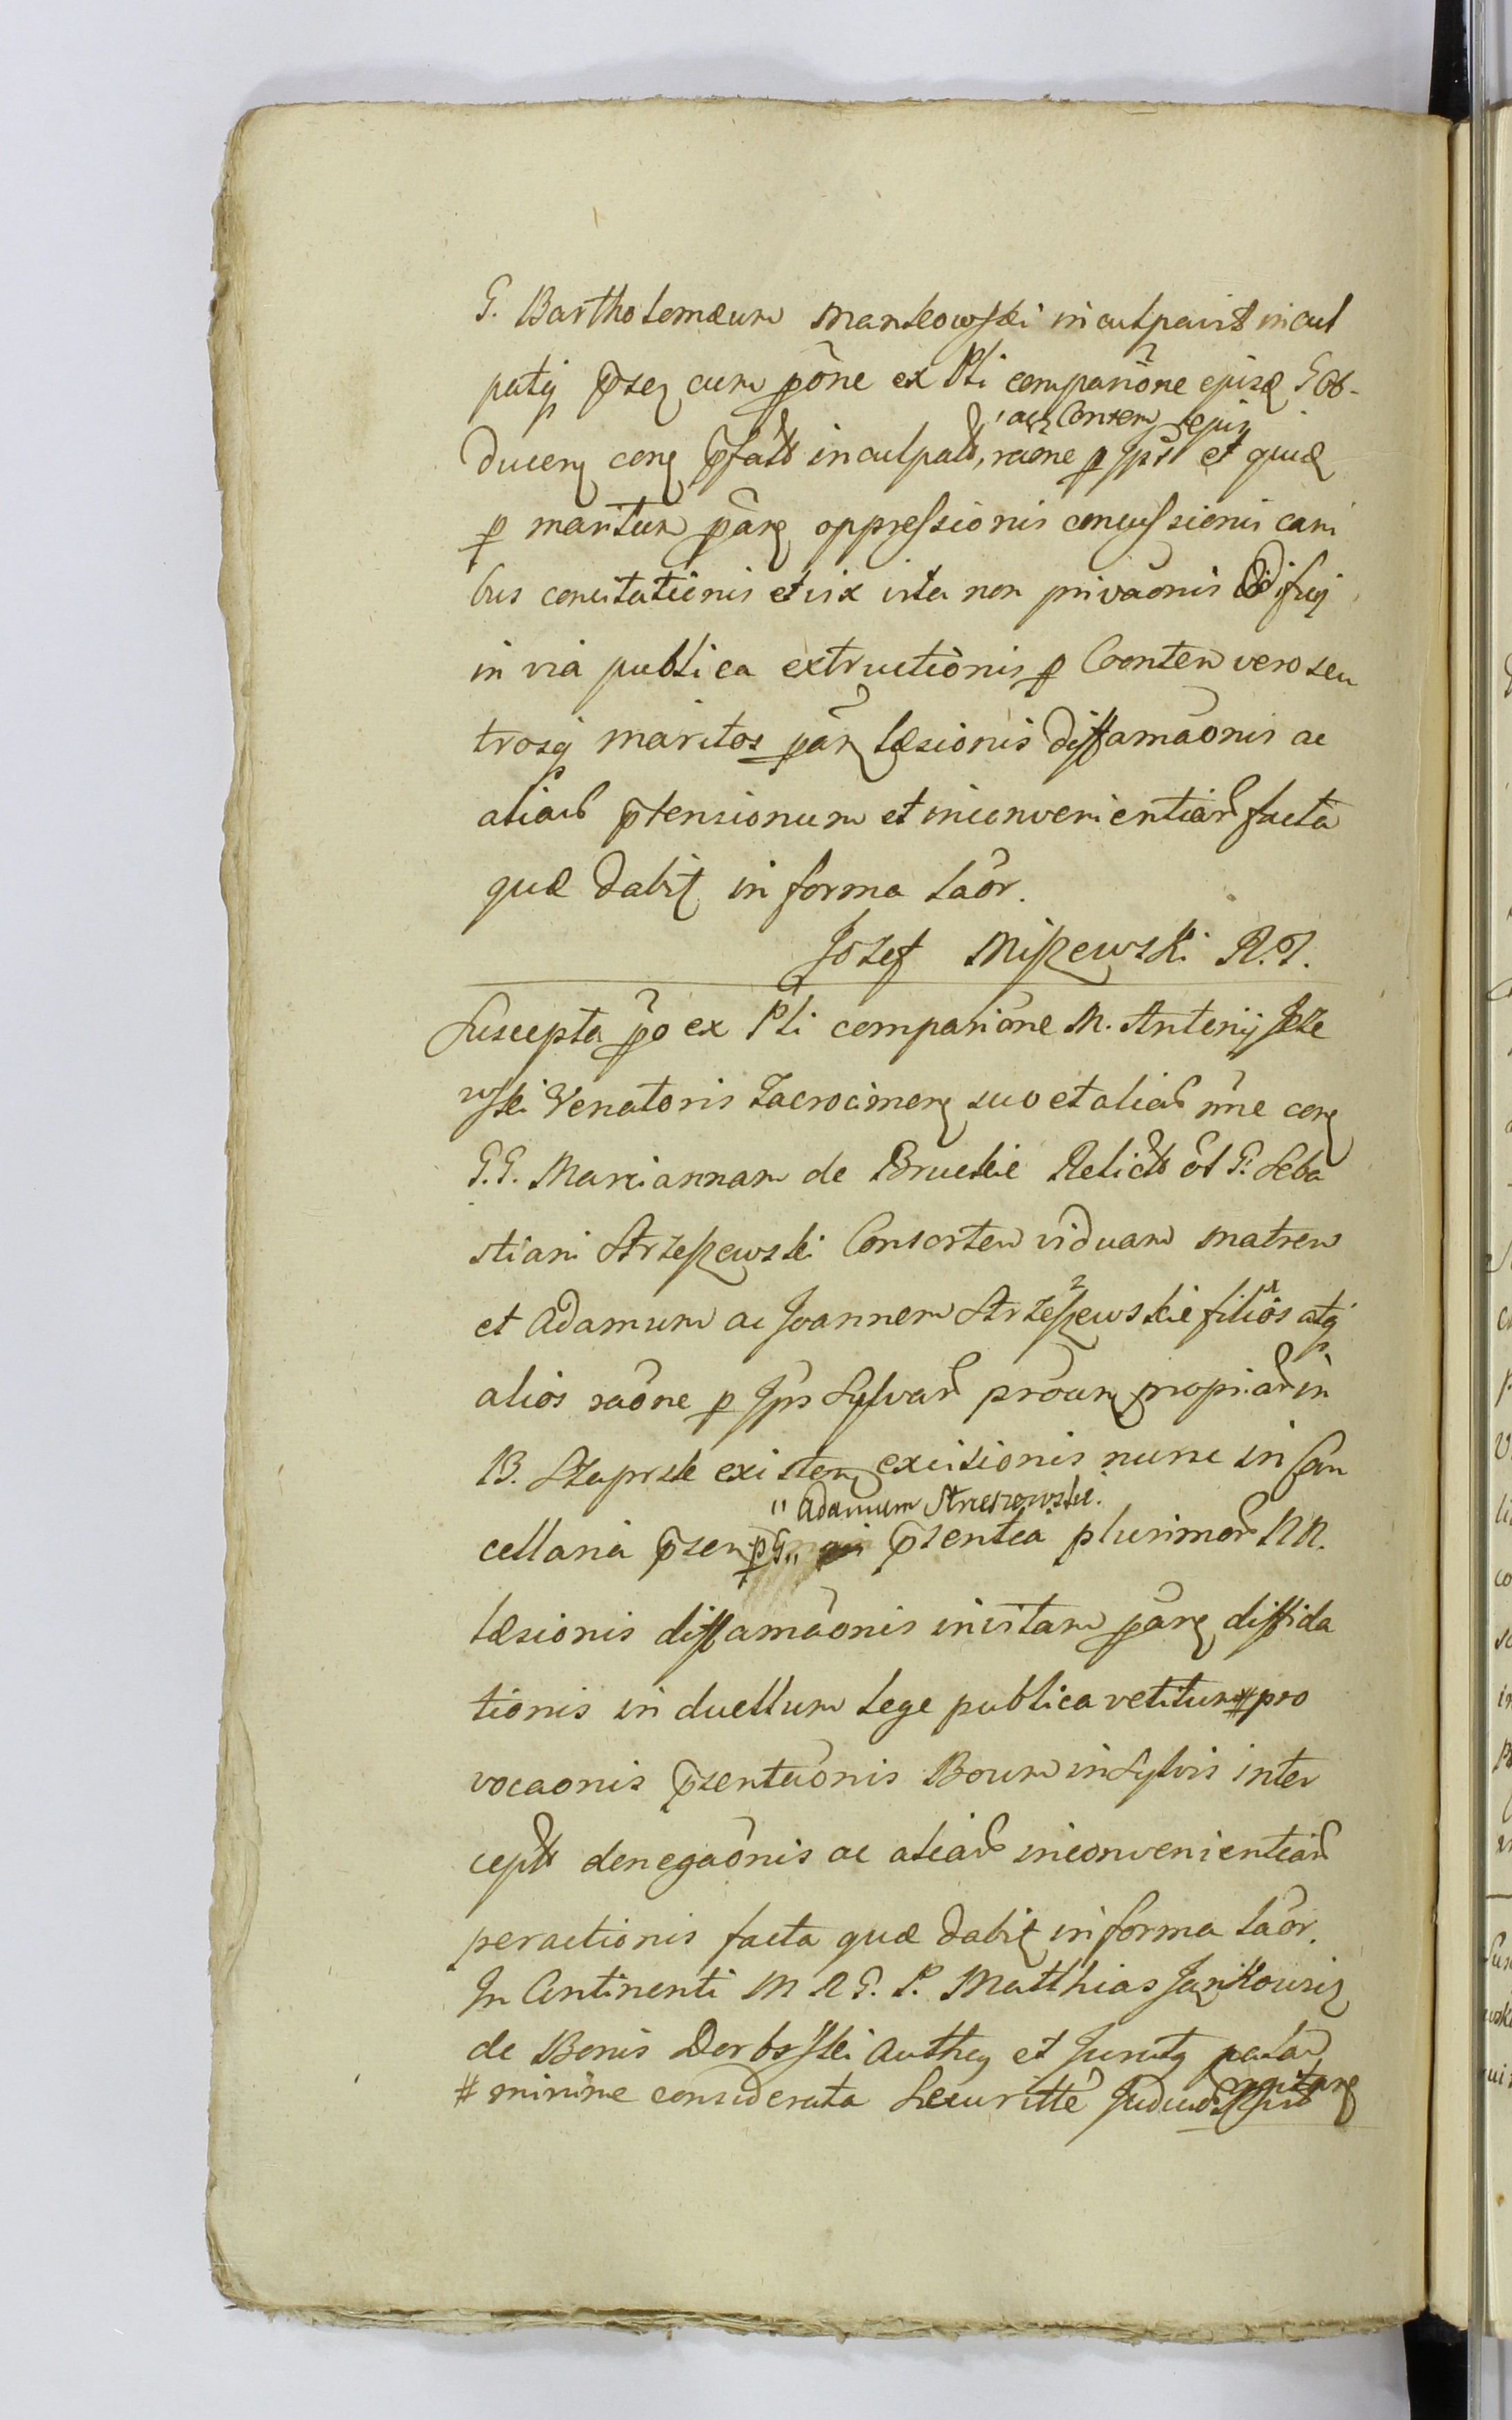 G. Bartholomæum Mankowski inculpavit incul
patq p̄sen cum p̄one ex Pti comparione ejusd G Ob-
ac Consortem ejus
ducens cong p̄fatt inculpatt, raõne p Ipsũ et quidẽ
p maritum pãrg oppressionis concussionis cani
bus concitationis et vix ista non privaõnis
in via publica extructionis p Consten vero seu
trosq maritos pãr læsionis diffamaõnis ac
aliar p̄tensionum et inconvenientiar facta
quæ dabit in forma laõr.
Jozef Miszewski R.T.
Suscepta põ ex Pti comparione M. Antonij Jeze
wski Venatoris Zacrocimen suo et aliar nñe cong
G.G. Mariannam de Bruckie Relict õl G. Seba
stiani Strzeszewski Consortem viduam matrem
et Adamum ac Joannem Strzeszewskie filiõs atq
alios raõne p Ipsos Sylvar proar propriar in
B. Szapsk existen excisionis nunc in Can
"Adamum Strzeszewski.
cellaria p̄sen p G" p̄sentia plurimor NN.
læsionis diffamaõnis invitam pãrg diffida
tionis in duellum lege publica vetitum # pro
vocaonis p̄sentaõnis Boum in Sylvis inter
cept denegaõnis ac aliar inconvenientiar
peractionis facta quæ dabit in forma laõr.
In Continenti M R G. P. Matthias Jankowski
de Bonis Derbsski Authen et Jurat palam
# minime considerata Securitte Judicior